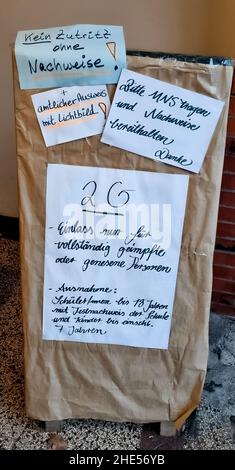 Kein Zutritt
ohne
Nachweise!
+
amtlicher Ausweis
mit Lichtbild!
Bitte MNS tragen
und Nachweise
bereithalten
Danke
2G
- Einlass nur für
vollständig geimpfte
oder genesene Personen
- Ausnahme:
Schüler/innen bis 17 Jahren
mit Testnachweis der Schule
und Kinder bis einschl.
7 Jahren.
alamy
Image ID: 2HE56YB
www.alamy.com